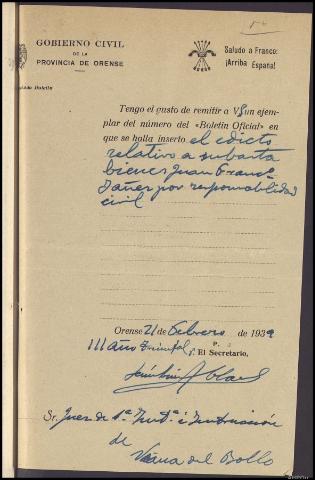 GOBIERNO CIVIL
DE LA
PROVINCIA DE ORENSE
Saludo a Franco:
¡Arriba España!
Boletín
Tengo el gusto de remitir a V S un ejem-
plar del número del «Boletín Oficial» en
que se halla inserto el edicto
relativo a subasta
bienes Juan Franc.º
Yañez por responsabilidad
civil
Orense 21 de Febrero de 1939
III año Triunfal
P.
El Secretario,
Sr. Juez de 1ª Instª é Instrucción
de
Viana del Bollo